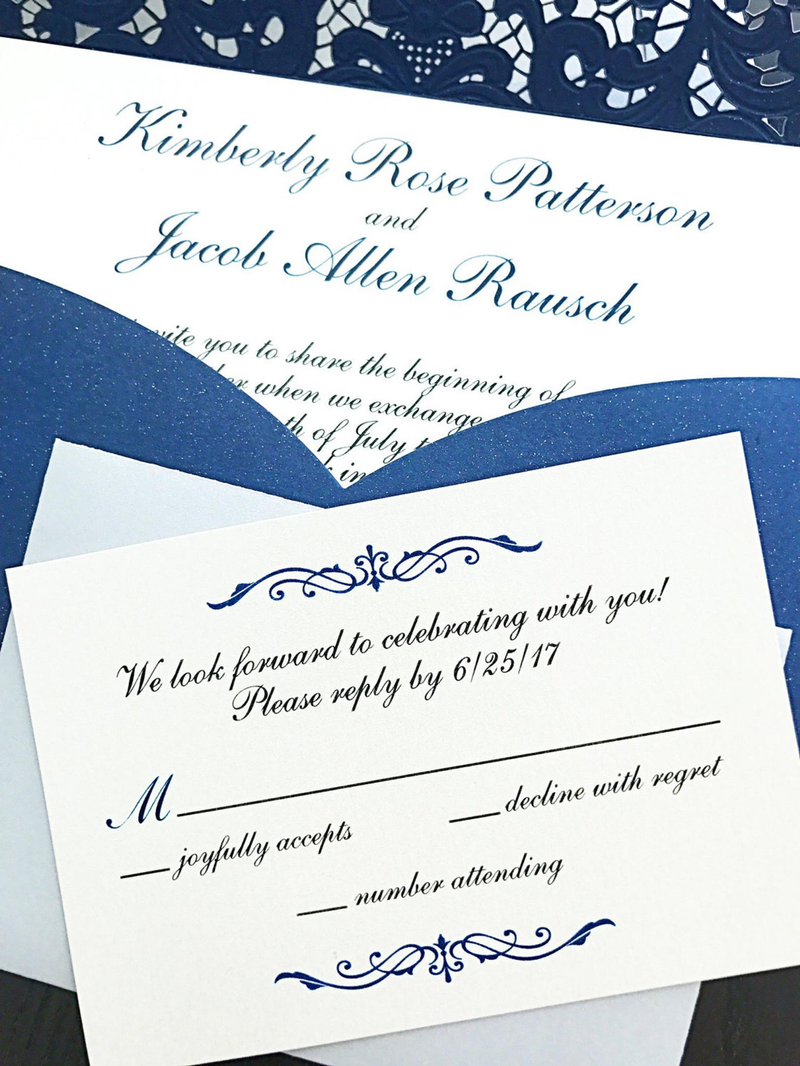 Kimberly Rose Patterson
and
Jacob Allen Rausch
you to share the beginning of
when we exchange
th of July
We look forward to celebrating with you!
Please reply by 6/25/17
M
joyfully accepts
decline with regret
number attending